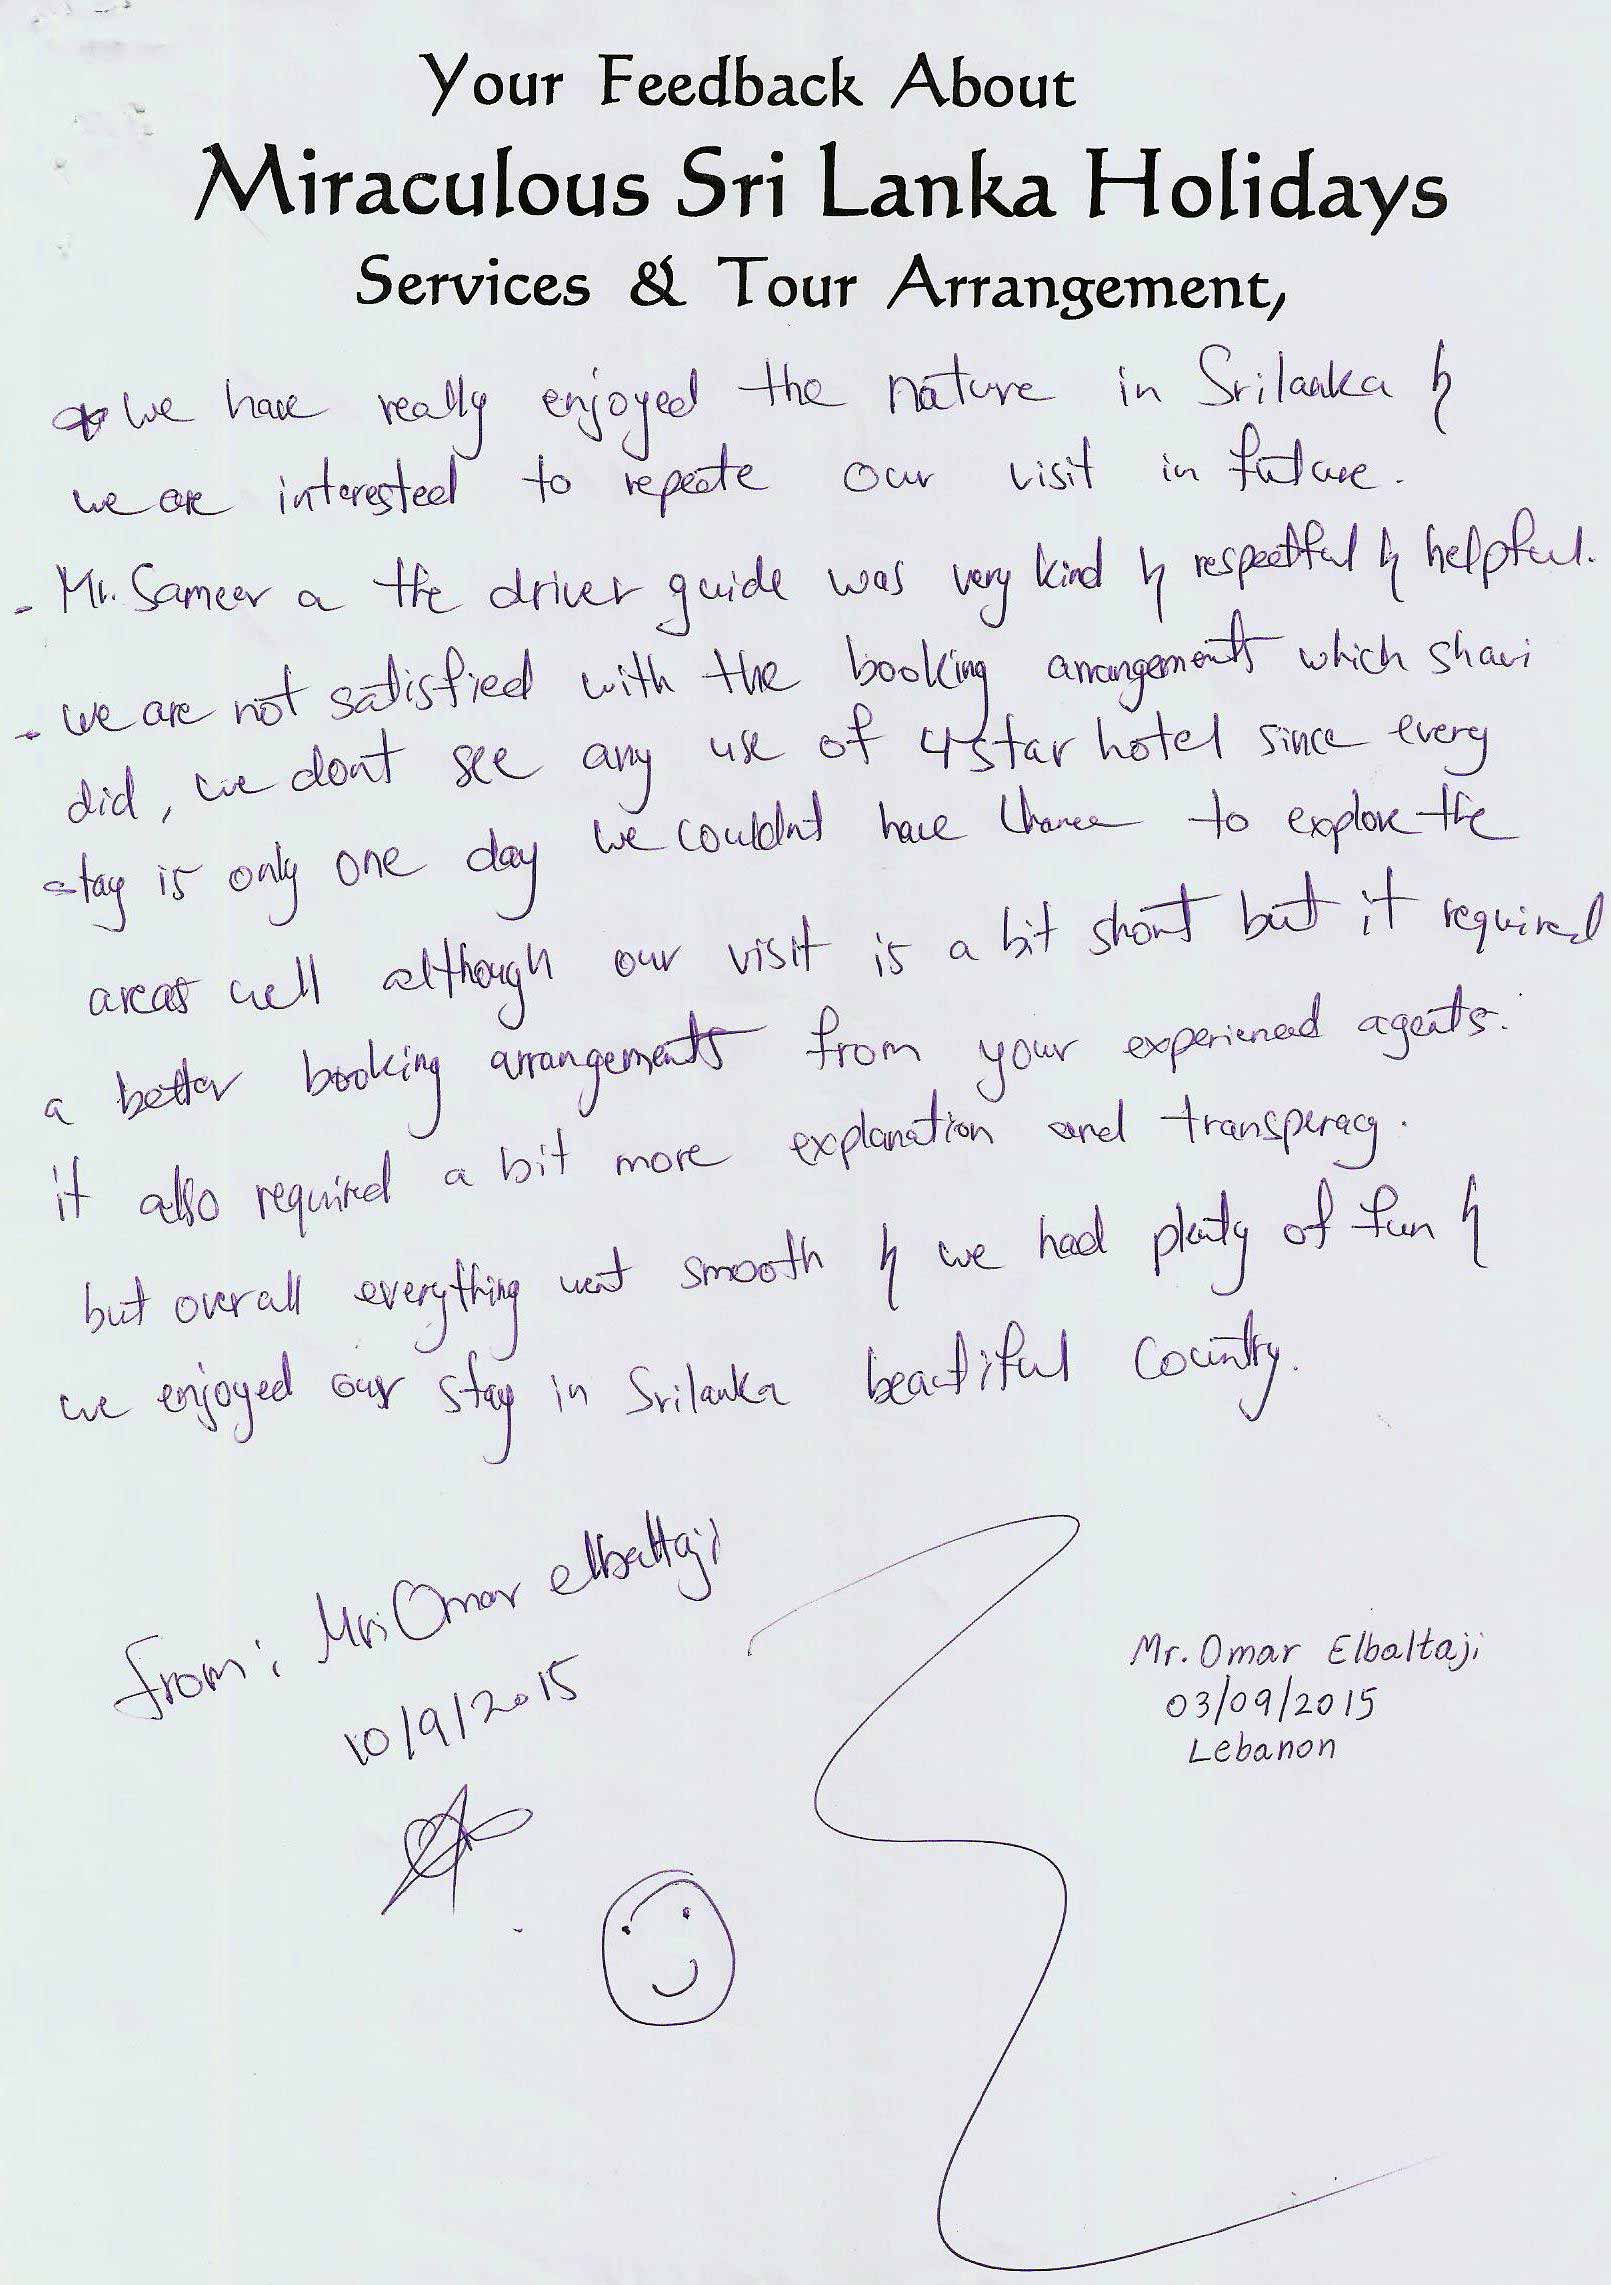 Your Feedback About
Miraculous Sri Lanka Holidays
Services & Tour Arrangement,
* we have really enjoyed the nature in Srilanka &
we are interested to repeate our visit in future.
- Mr. Sameer a the driver guide was very kind & respectful & helpful.
- we are not satisfied with the booking arrangements which shavi
did, we dont see any use of 4 star hotel since every
stay is only one day we couldnt have chance to explore the
areas well although our visit is a bit short but it required
a better booking arrangements from your experienced agents.
it also required a bit more explanation and transperacy.
but overall everything went smooth & we had plenty of fun &
we enjoyed our stay in Srilanka beautiful country.
From: Mr. Omar elbaltaji
10/9/2015
Mr. Omar Elbaltaji
03/09/2015
Lebanon